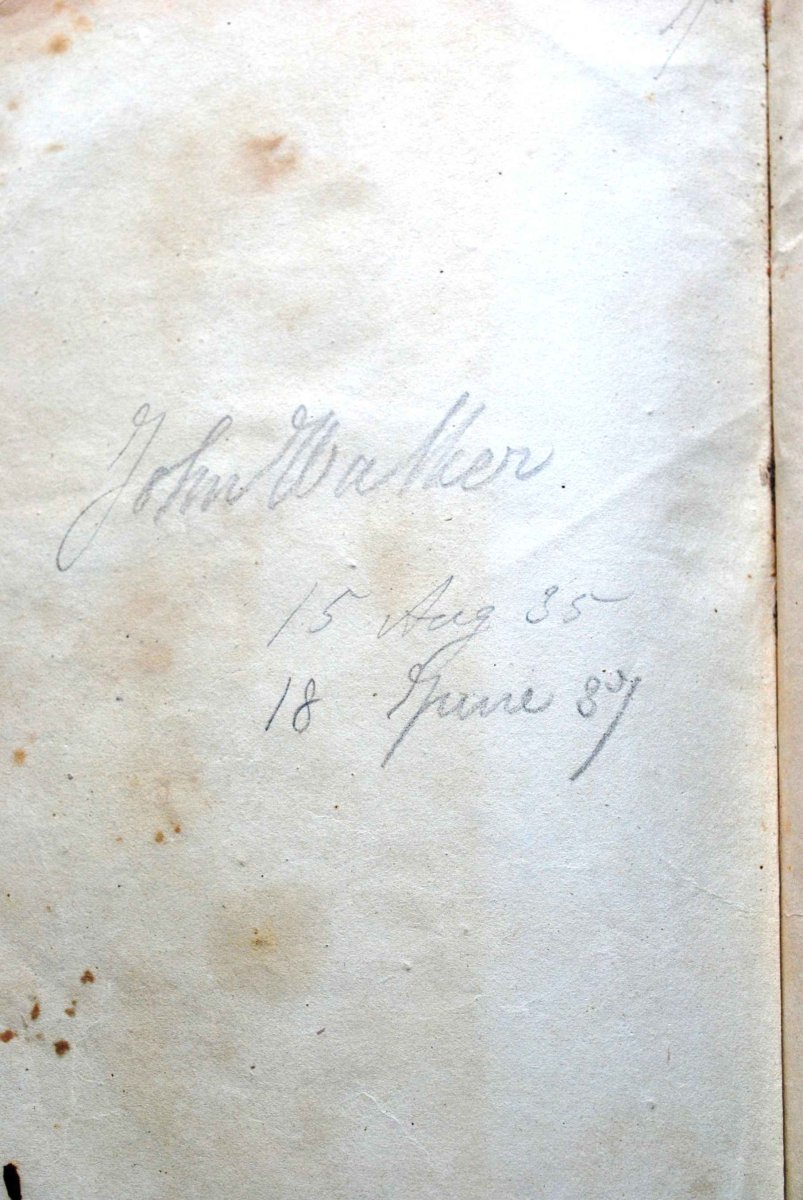 John Walker
15 Aug 35
18 June 37